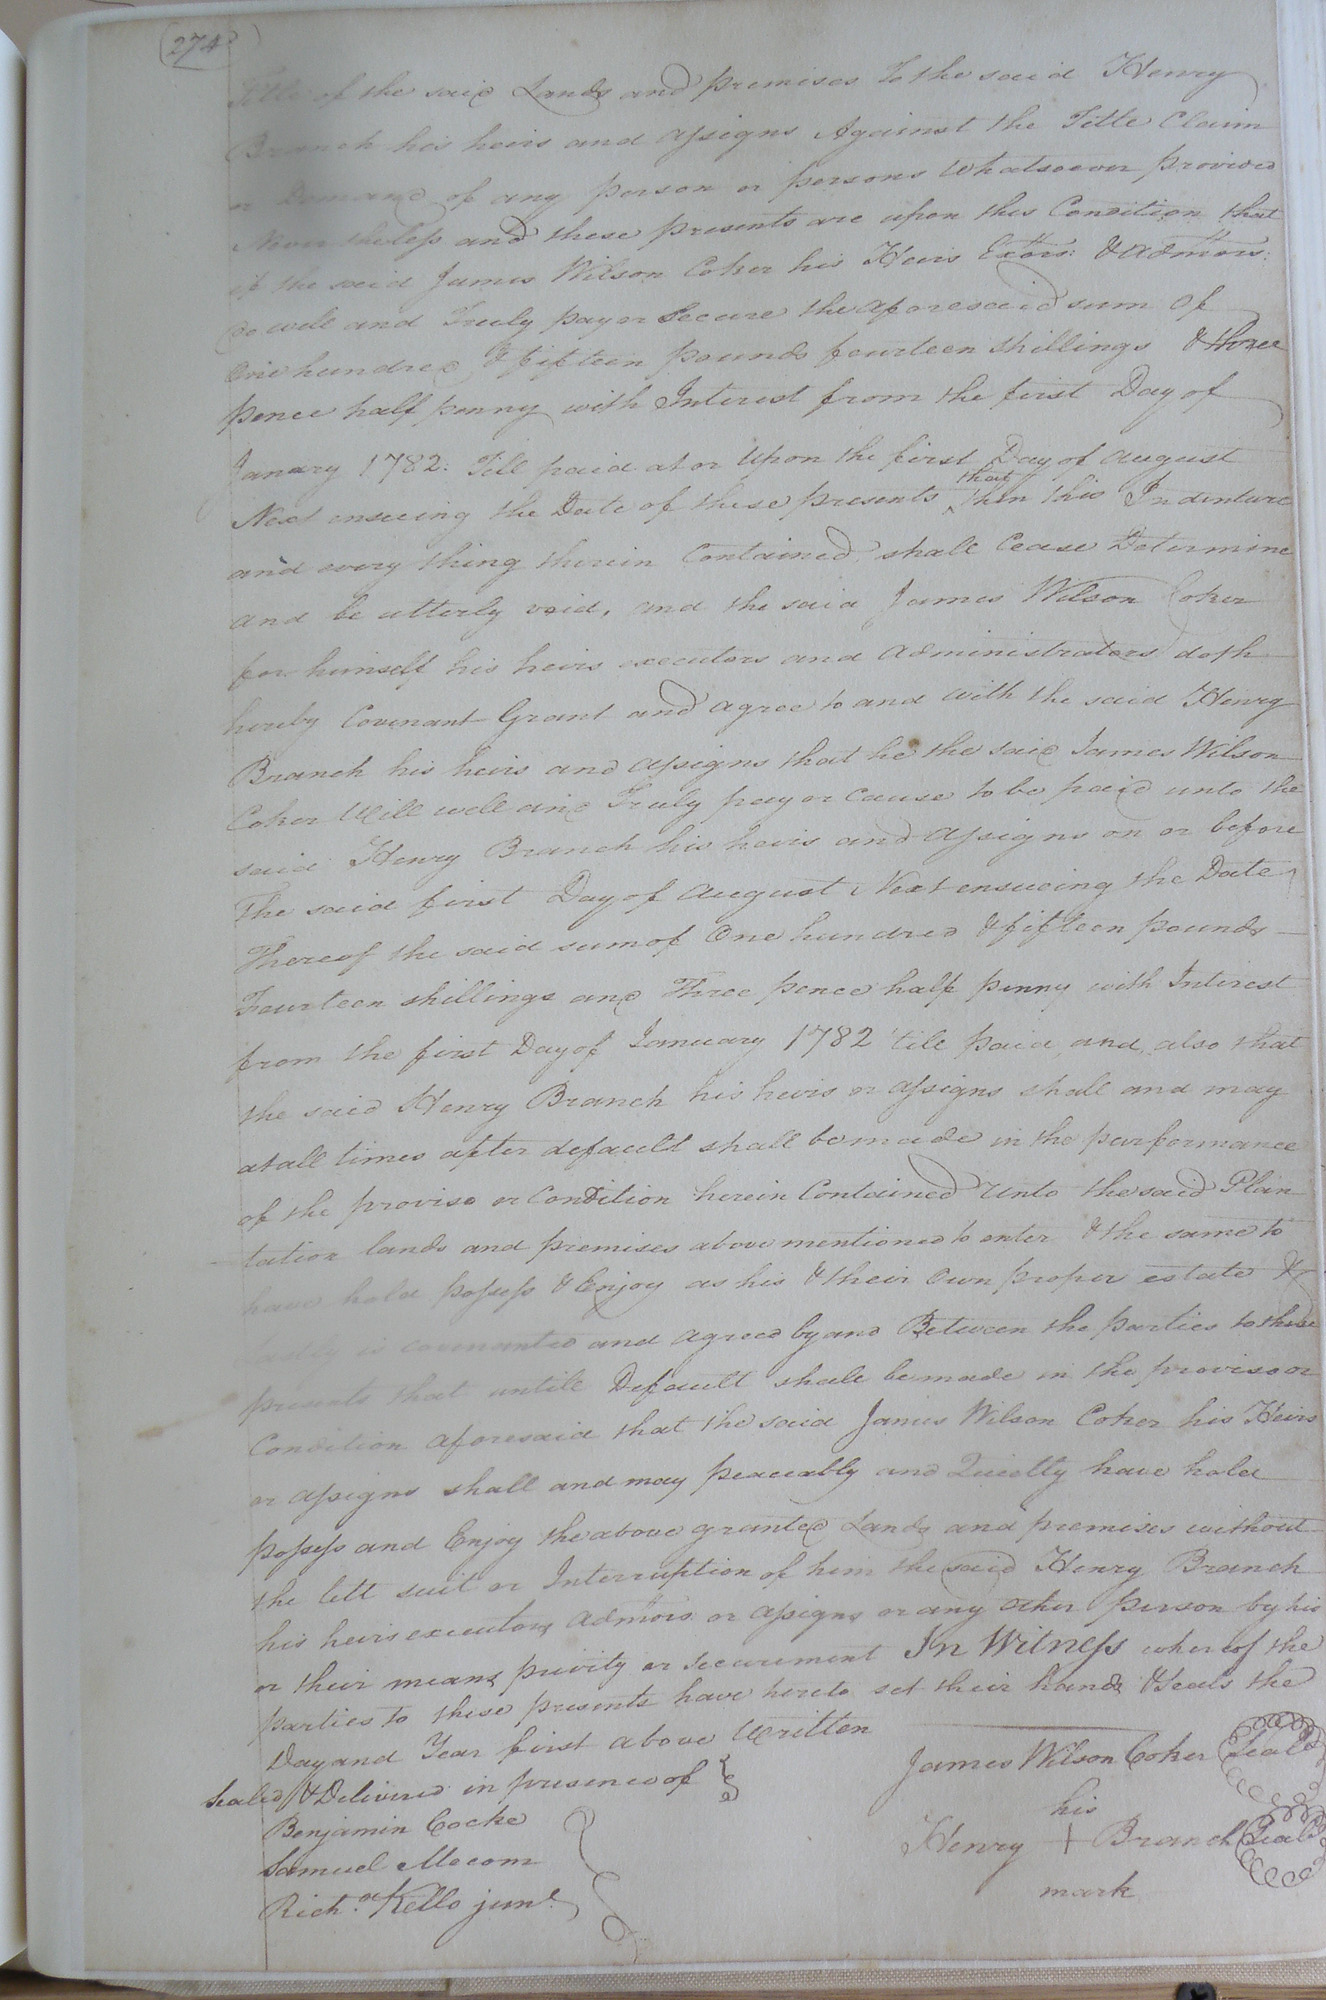 274
Title of the said Lands and premises to the said Henry
Branch his heirs and assigns Against the Title Claim
or Demand of any person or persons Whatsoever provided
Never theless and these presents are upon this Condition that
if the said James Wilson Coker his Heirs Exōrs: & admōrs:
do well and Truly pay or Secure the aforesaid sum of
One hundred & fifteen pounds fourteen shillings & three
pence half penny with Interest from the first Day of
Janary 1782: Till paid at or Upon the first Day of august
Next ensueing the Date of these presents ^that then this Indenture
and every thing therein Contained shall Cease Determine
and be utterly void, and the said James Wilson Coker
for himself his heirs executors and administrators doth
hereby Covenant Grant and agree to and with the said Henry
Branch his heirs and assigns that he the said James Wilson
Coker Will well and Truly pay or Cause to be paid unto the
said Henry Branch his heirs and assigns on or before
The said first Day of august Next ensueing the Date
Thereof the said sum of One hundred & fifteen pounds
Fourteen shillings and Three pence half penny with Interest
from the first Day of January 1782 'till paid and also that
the said Henry Branch his heirs or assigns shall and may
at all times after default shall be made in the performance
of the proviso or Condition herein Contained Unto the said Plan
tation lands and premises above mentioned to enter & the same to
have hold possess & Enjoy as his & their Own proper estate &
is covenanted and agreed by and Between the parties to these
presents that untill Default shall be made in the proviso or
Condition aforesaid that the said James Wilson Coker his Heirs
or assigns shall and may peaceably and Quietly have hold
possess and Enjoy the above granted Lands and premises without
the lett suit or Interruption of him the said Henry Branch
his heirs executors admōrs or assigns or any other person by his
or their means privity or securement In Witness whereof the
parties to these presents have hereto set their hands & Seals the
Day and Year first above Written
James Wilson Coker Seal
Sealed & Delivered in presence of
Benjamin Cocke
Samuel Mecom
Richd. Kello junr.
his
Henry + Branch Seal
mark